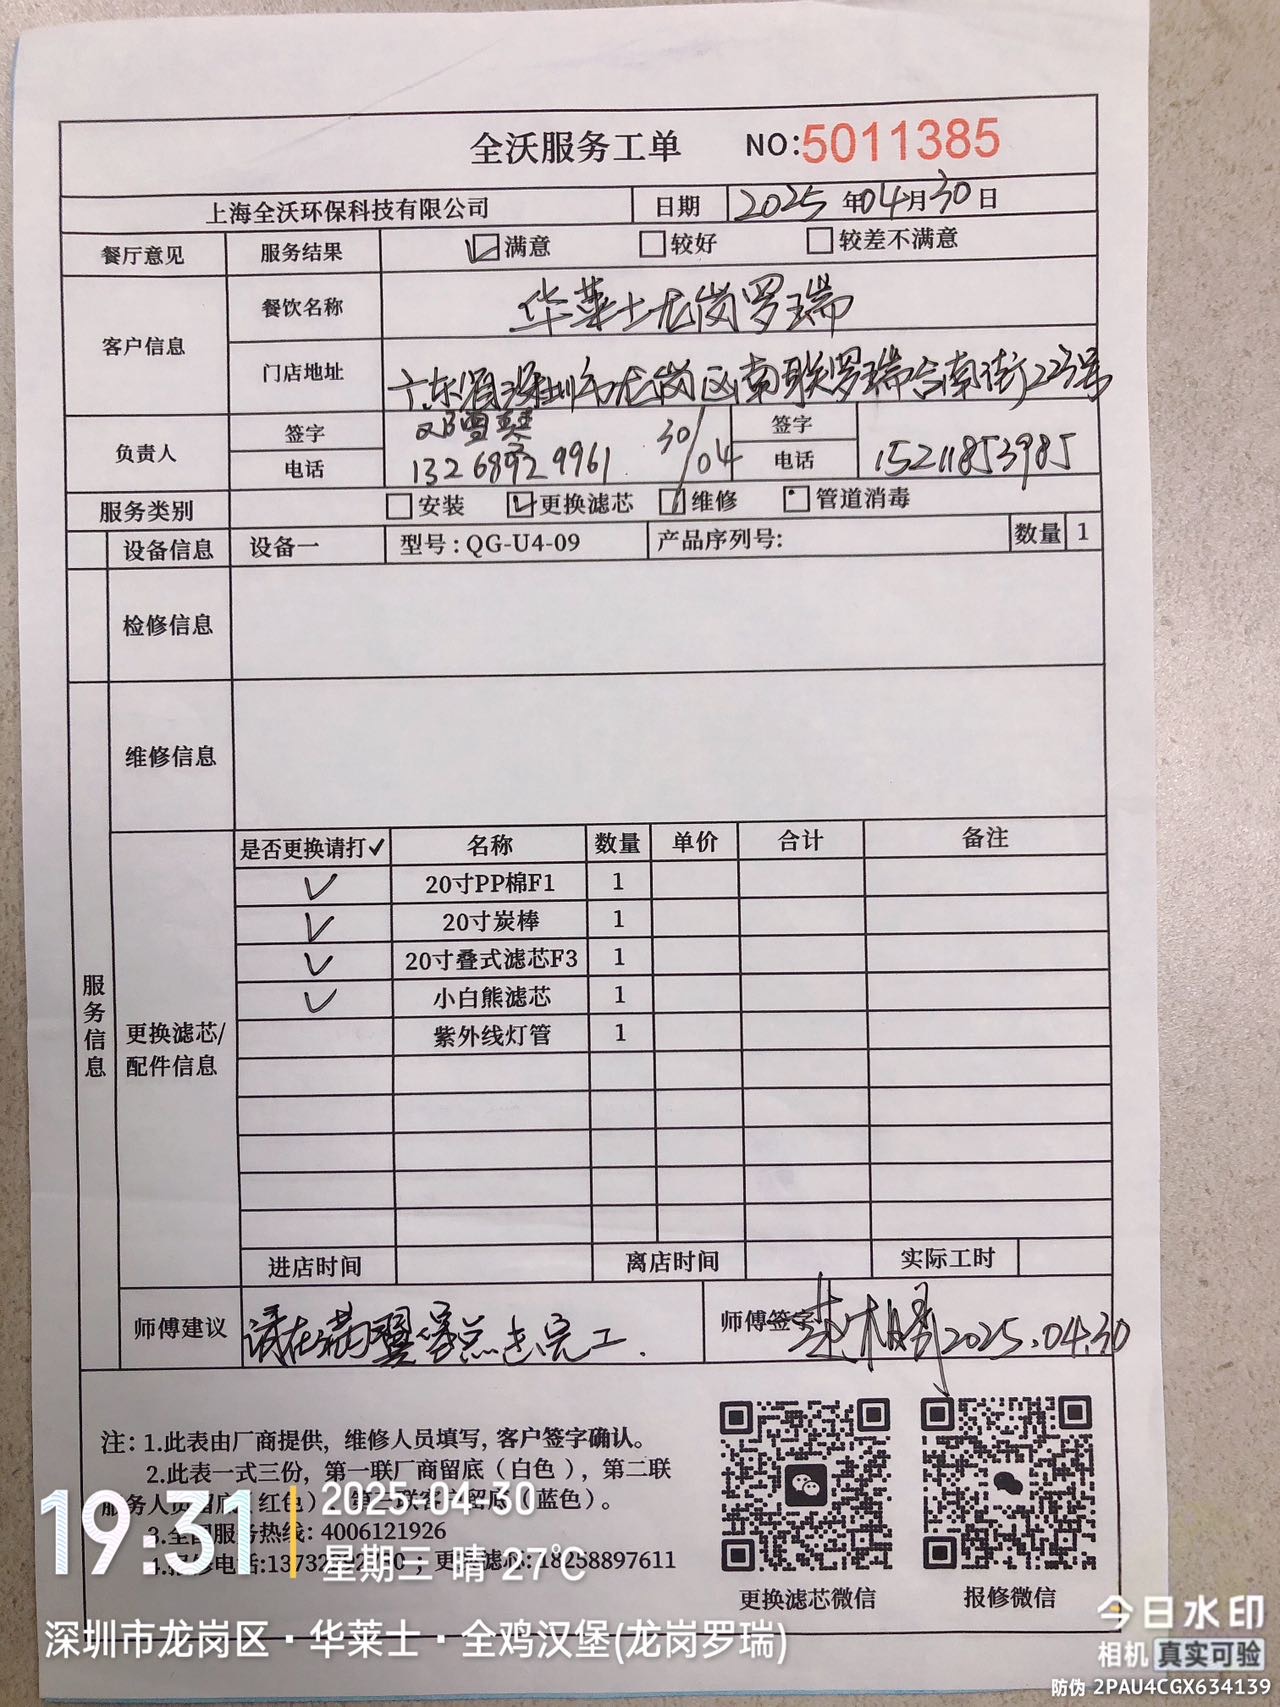 全沃服务工单 NO:5011385
上海全沃环保科技有限公司 日期 2025年04月30日
餐厅意见 服务结果 满意 较好 较差不满意
客户信息 餐饮名称 华莱士龙岗罗瑞
门店地址 广东省深圳市龙岗区南联罗瑞合南街223号
负责人 签字 邓雪琴 30/04 签字
电话 13268929961 电话 15211853985
服务类别 安装 更换滤芯 维修 管道消毒
设备信息 设备一 型号:QG-U4-09 产品序列号: 数量 1
检修信息
服务信息
维修信息
更换滤芯/
配件信息
是否更换请打✓ 名称 数量 单价 合计 备注
✓ 20寸PP棉F1 1
✓ 20寸炭棒 1
✓ 20寸叠式滤芯F3 1
✓ 小白熊滤芯 1
紫外线灯管 1
进店时间 离店时间 实际工时
师傅建议 完工. 师傅签字 2025.04.30
注: 1.此表由厂商提供, 维修人员填写, 客户签字确认。
2.此表一式三份, 第一联厂商留底(白色), 第二联
服务人员留底(红色) 第三联客户留底(蓝色)。
3.全国服务热线: 4006121926
4.报修电话:13732 ; 更换滤芯: 18258897611
更换滤芯微信 报修微信
19:31 2025.04.30
星期三 晴 27℃
深圳市龙岗区·华莱士·全鸡汉堡(龙岗罗瑞)
今日水印
相机 真实可验
防伪 2PAU4CGX634139